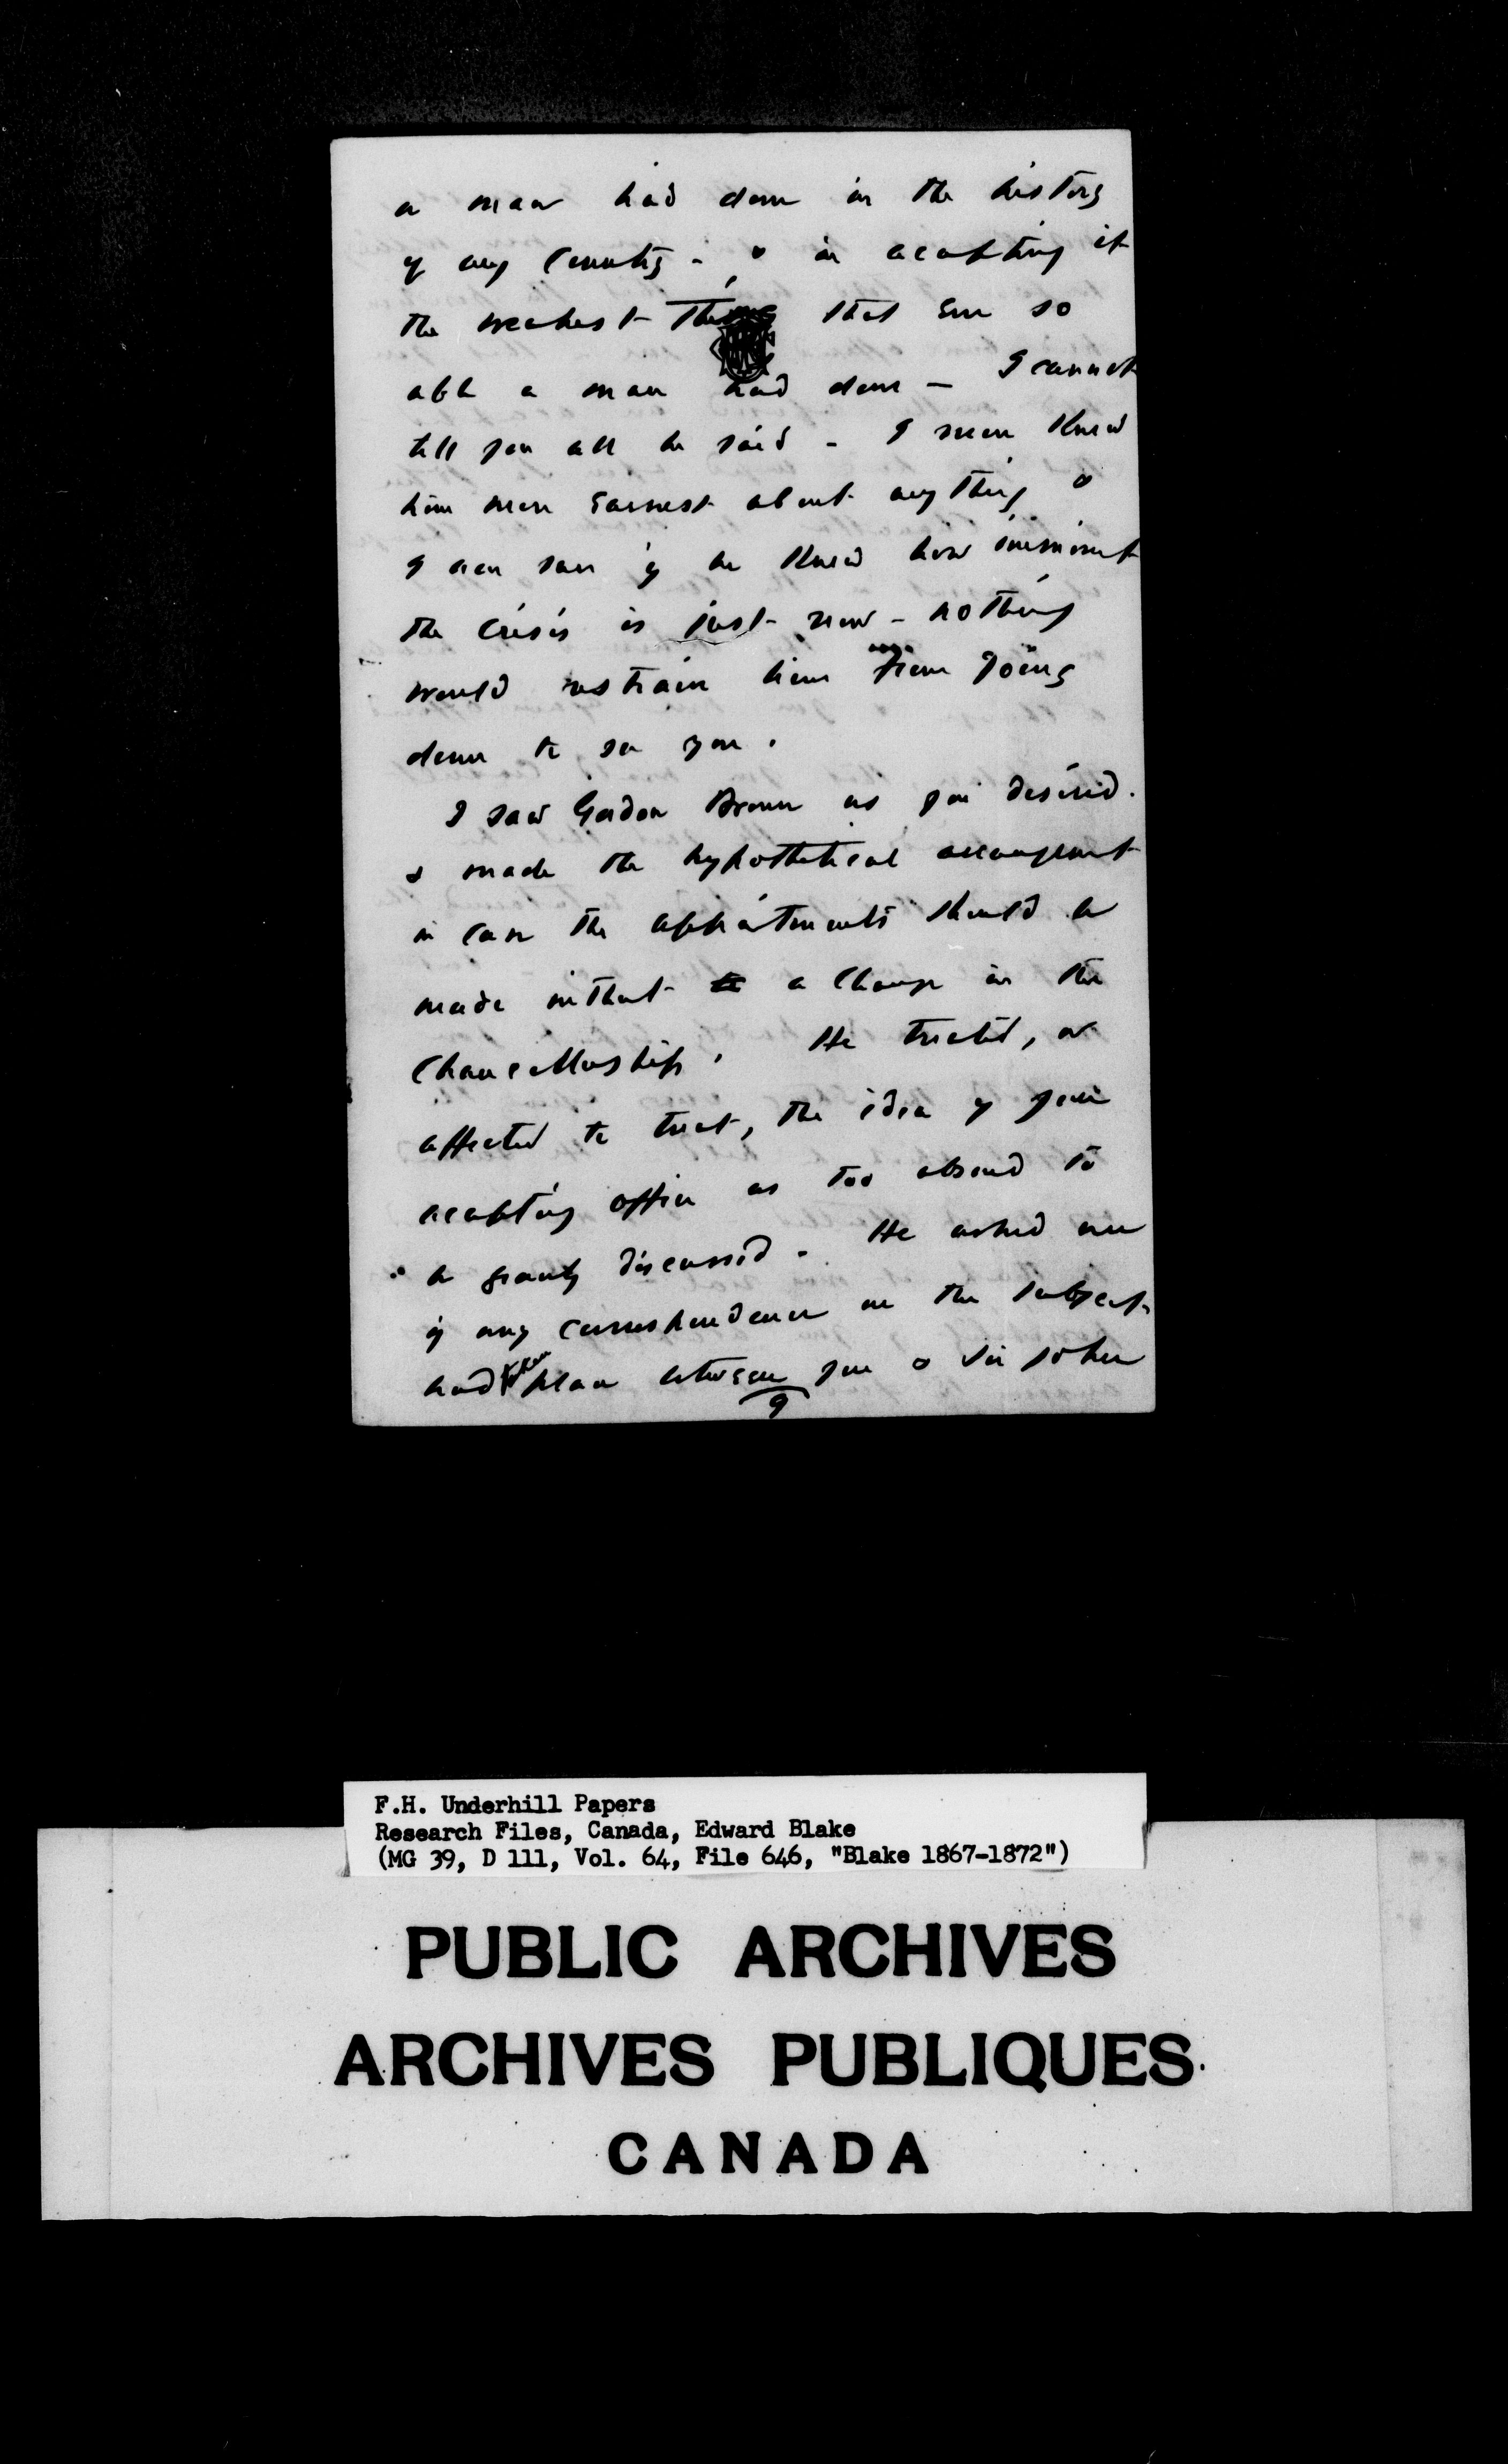 a man had done in the history
of any Country - & in accepting it
the weakest thing that ever so
able a man had done - I cannot
tell you all he said - I never knew
him more earnest about anything &
I am sure if he knew how imminent
the crisis is just now - nothing
would restrain him from going
down to see you.
I saw Gordon Brown as you desired.
& made the hypothetical arrangement
in case the appointments should be
made without a change in the
Chancellorship. He treated, or
affected to treat, the idea of your
accepting office as too absurd to
be gravely discussed. He asked me
if any correspondence on the subject
had taken place between you & Sir John
9
F.H. Underhill Papers
Research Files, Canada, Edward Blake
(MG 39, D 111, Vol. 64, File 646, "Blake 1867-1872")
PUBLIC ARCHIVES
ARCHIVES PUBLIQUES
CANADA